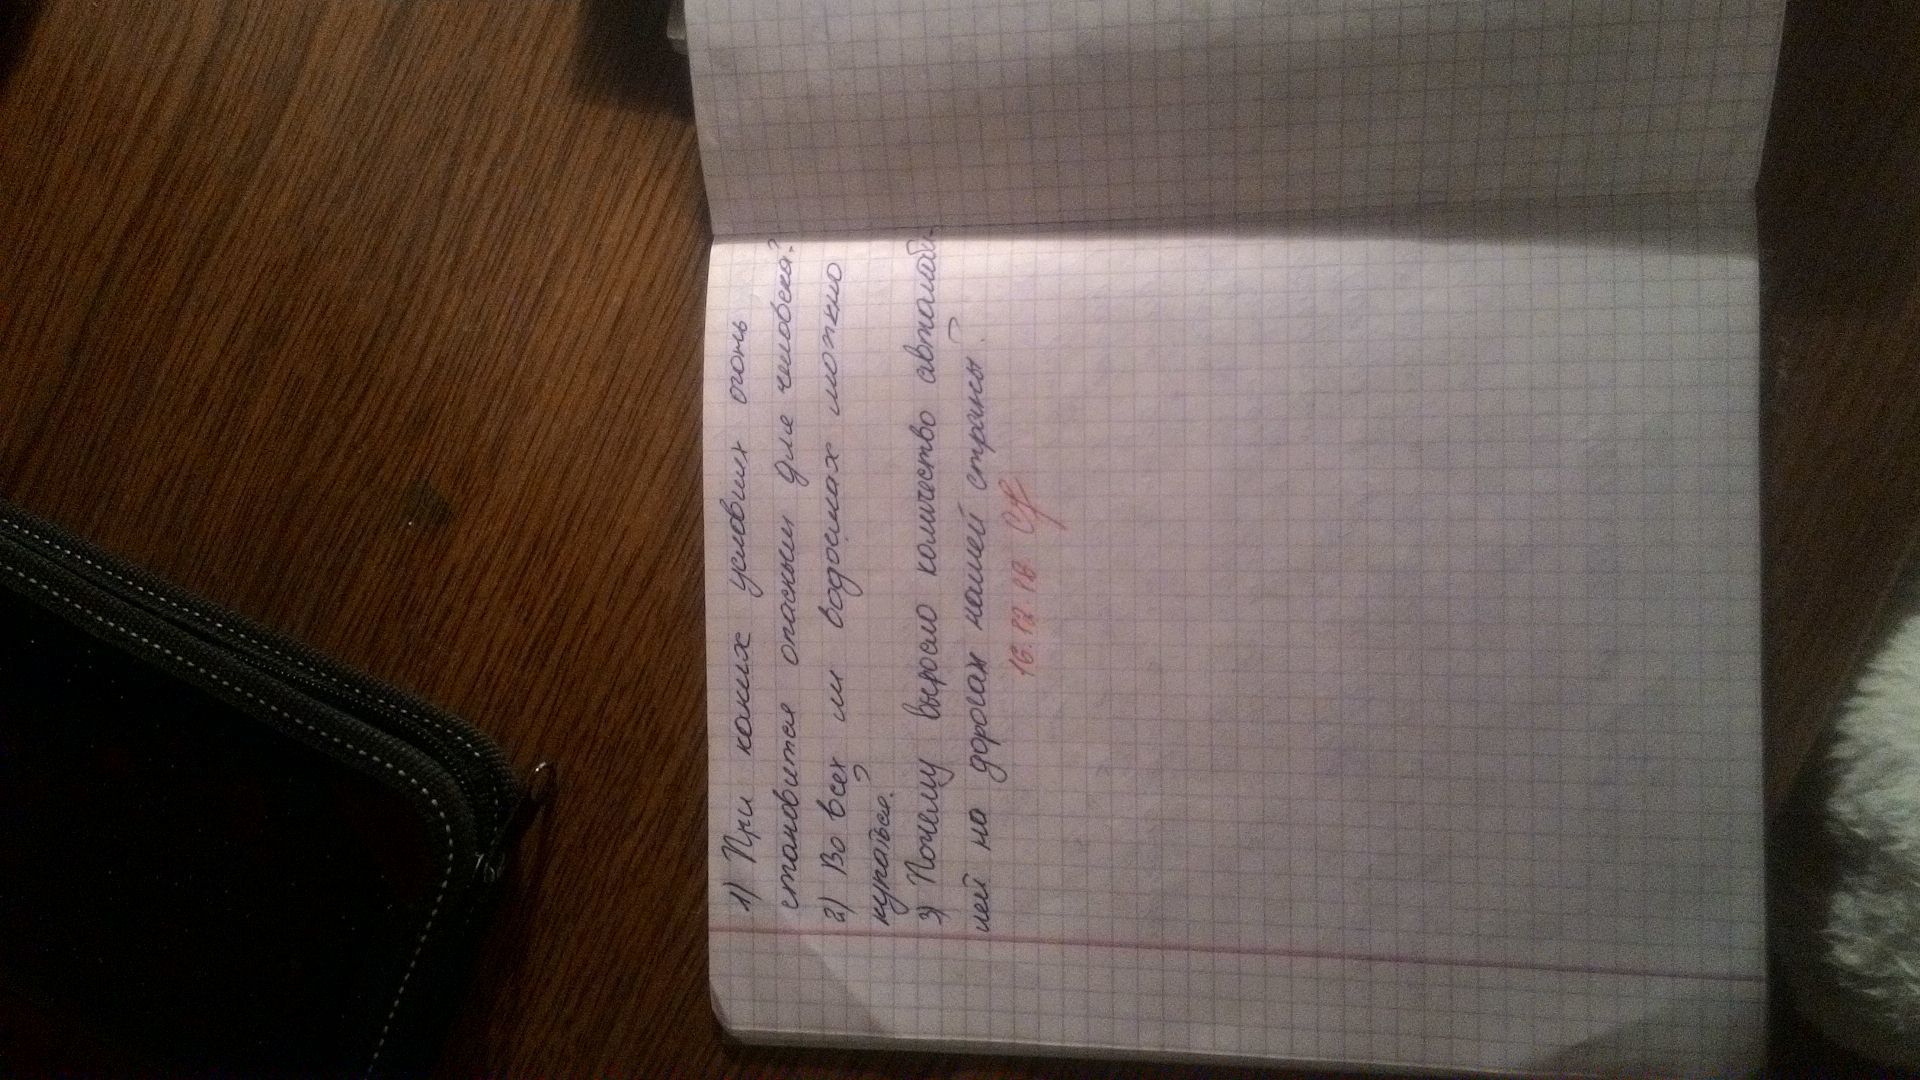 1) При каких условиях огонь
становится опасным для человека?
2) Во всех ли водоемах можно
купаться?
3) Почему выросло количество автомоби-
лей на дорогах нашей страны?
16.12.18